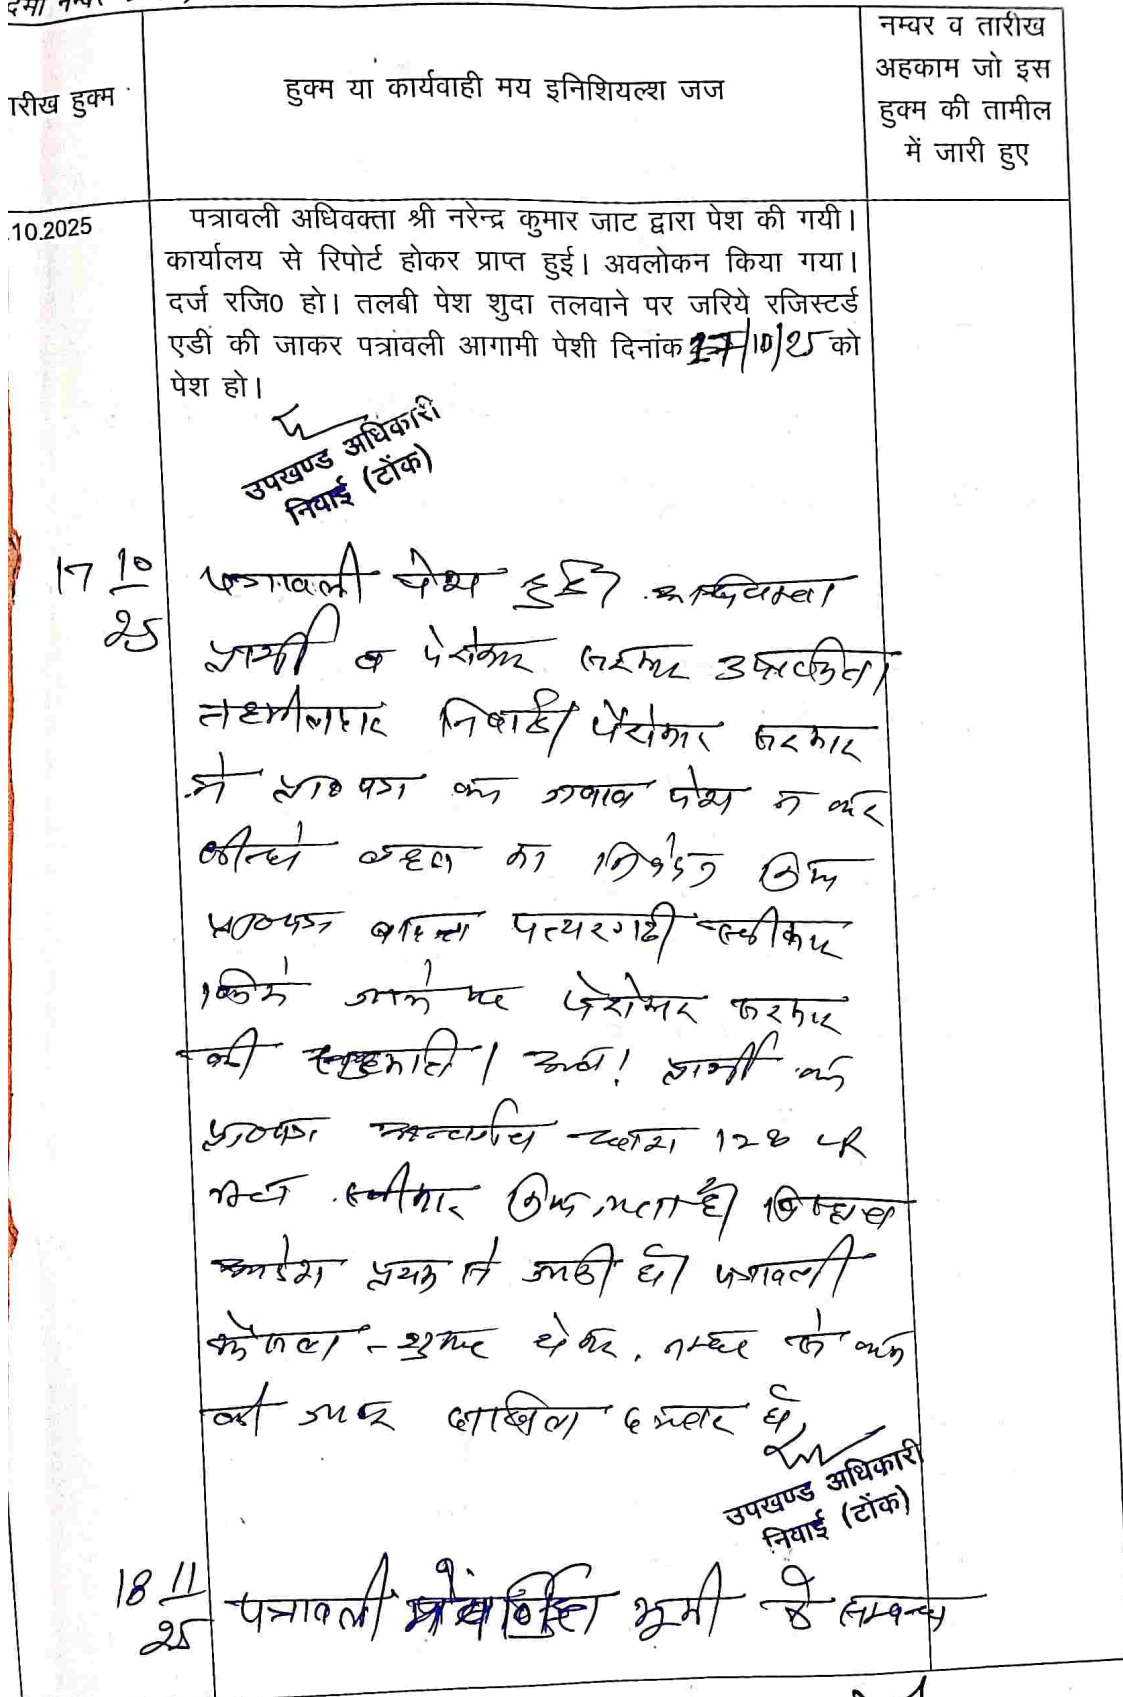 नम्वर व तारीख
अहकाम जो इस
हुक्म की तामील
में जारी हुए
हुक्म या कार्यवाही मय इनिशियल्श जज
ारीख हुक्म
.10.2025
पत्रावली अधिवक्ता श्री नरेन्द्र कुमार जाट द्वारा पेश की गयी।
कार्यालय से रिपोर्ट होकर प्राप्त हुई। अवलोकन किया गया।
दर्ज रजि0 हो। तलबी पेश शुदा तलवाने पर जरिये रजिस्टर्ड
एडी की जाकर पत्रांवली आगामी पेशी दिनांक 17/10/25 को
पेश हो।
उपखण्ड अधिकारी
निवाई (टोंक)
17 10/25
पत्रावली पेश हुई। अधिवक्ता
प्रार्थी व पेरोकार सरकार उपस्थित।
तहसीलदार निवाई/पैरोकार सरकार
ने प्रा०पत्र का जवाब पेश न कर
सीधे बहस का निवेदन किया
प्रा०पत्र पत्थरगढी स्वीकार
किये जाने पर पेरोकार सरकार
की सहमति। अतः प्रार्थी का
प्रा०पत्र अन्तर्गत धारा 128 LR
स्वीकार किया जाता है। विस्तृत
आदेश पृथक से जारी हो। पत्रावली
फैसला शुमार होकर नम्बर से कम
की जाकर दाखिल दफ्तर हो
उपखण्ड अधिकारी
निवाई (टोंक)
18 11/25
पत्रावली भूमी के सम्बन्ध